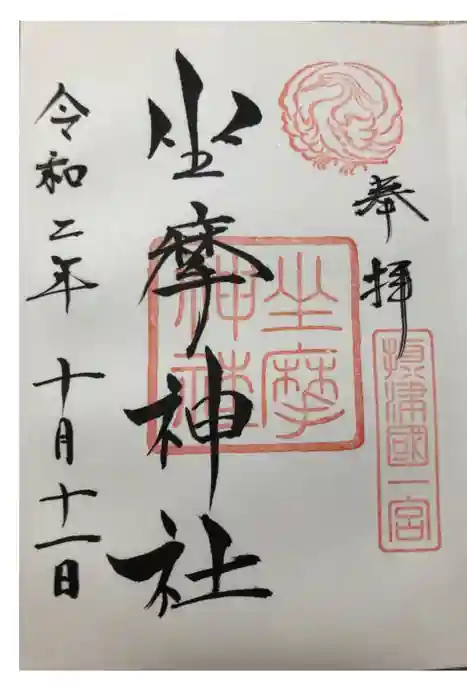 奉拝
摂津國一宮
坐摩神社
坐摩神社
令和二年十月十一日